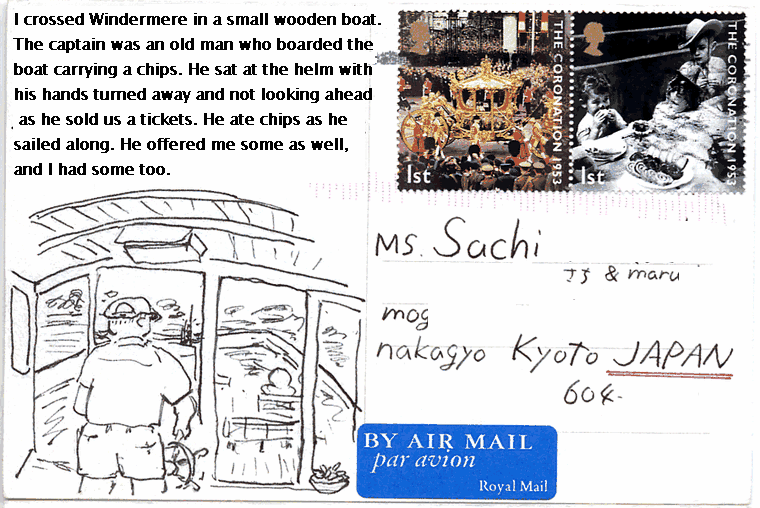 I crossed Windermere in a small wooden boat.
The captain was an old man who boarded the
boat carrying a chips. He sat at the helm with
his hands turned away and not looking ahead
as he sold us a tickets. He ate chips as he
sailed along. He offered me some as well,
and I had some too.
THE CORONATION 1953
1st
THE CORONATION 1953
1st
Ms. Sachi
さち & maru
mog
nakagyo Kyoto JAPAN
604-
BY AIR MAIL
par avion
Royal Mail